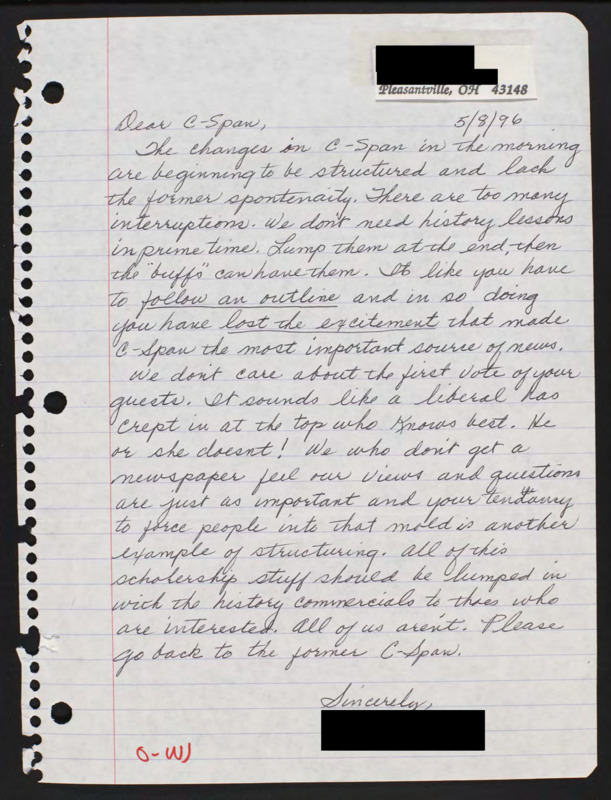 Pleasantville, OH 43148
Dear C-Span, 5/8/96
The changes on C-Span in the morning
are beginning to be structured and lack
the former spontenaity. There are too many
interruptions. We don't need history lessons
in prime time. Lump them at the end, then
the "buffs" can have them. It like you have
to follow an outline and in so doing
you have lost the excitement that made
C-Span the most important source of news.
We don't care about the first vote of your
guests. It sounds like a liberal has
crept in at the top who knows best. He
or she doesnt! We who don't get a
newspaper feel our views and questions
are just as important and your tendancy
to force people into that mold is another
example of structuring. All of this
scholership stuff should be lumped in
with the history commercials to thoes who
are interested. All of us aren't. Please
go back to the former C-Span.
Sincerely,
O-WJ